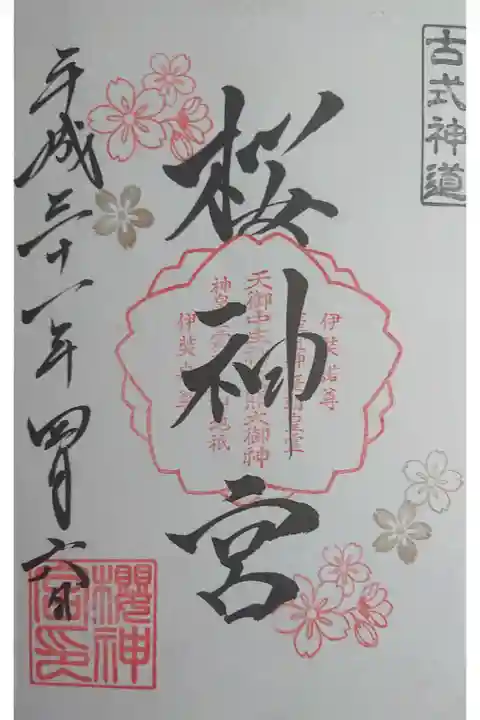 古式神道
桜神宮
伊奘諾尊
天御中主
照大御神
神皇
地祇
伊奘
平成三十一年四月六日
櫻神宮印